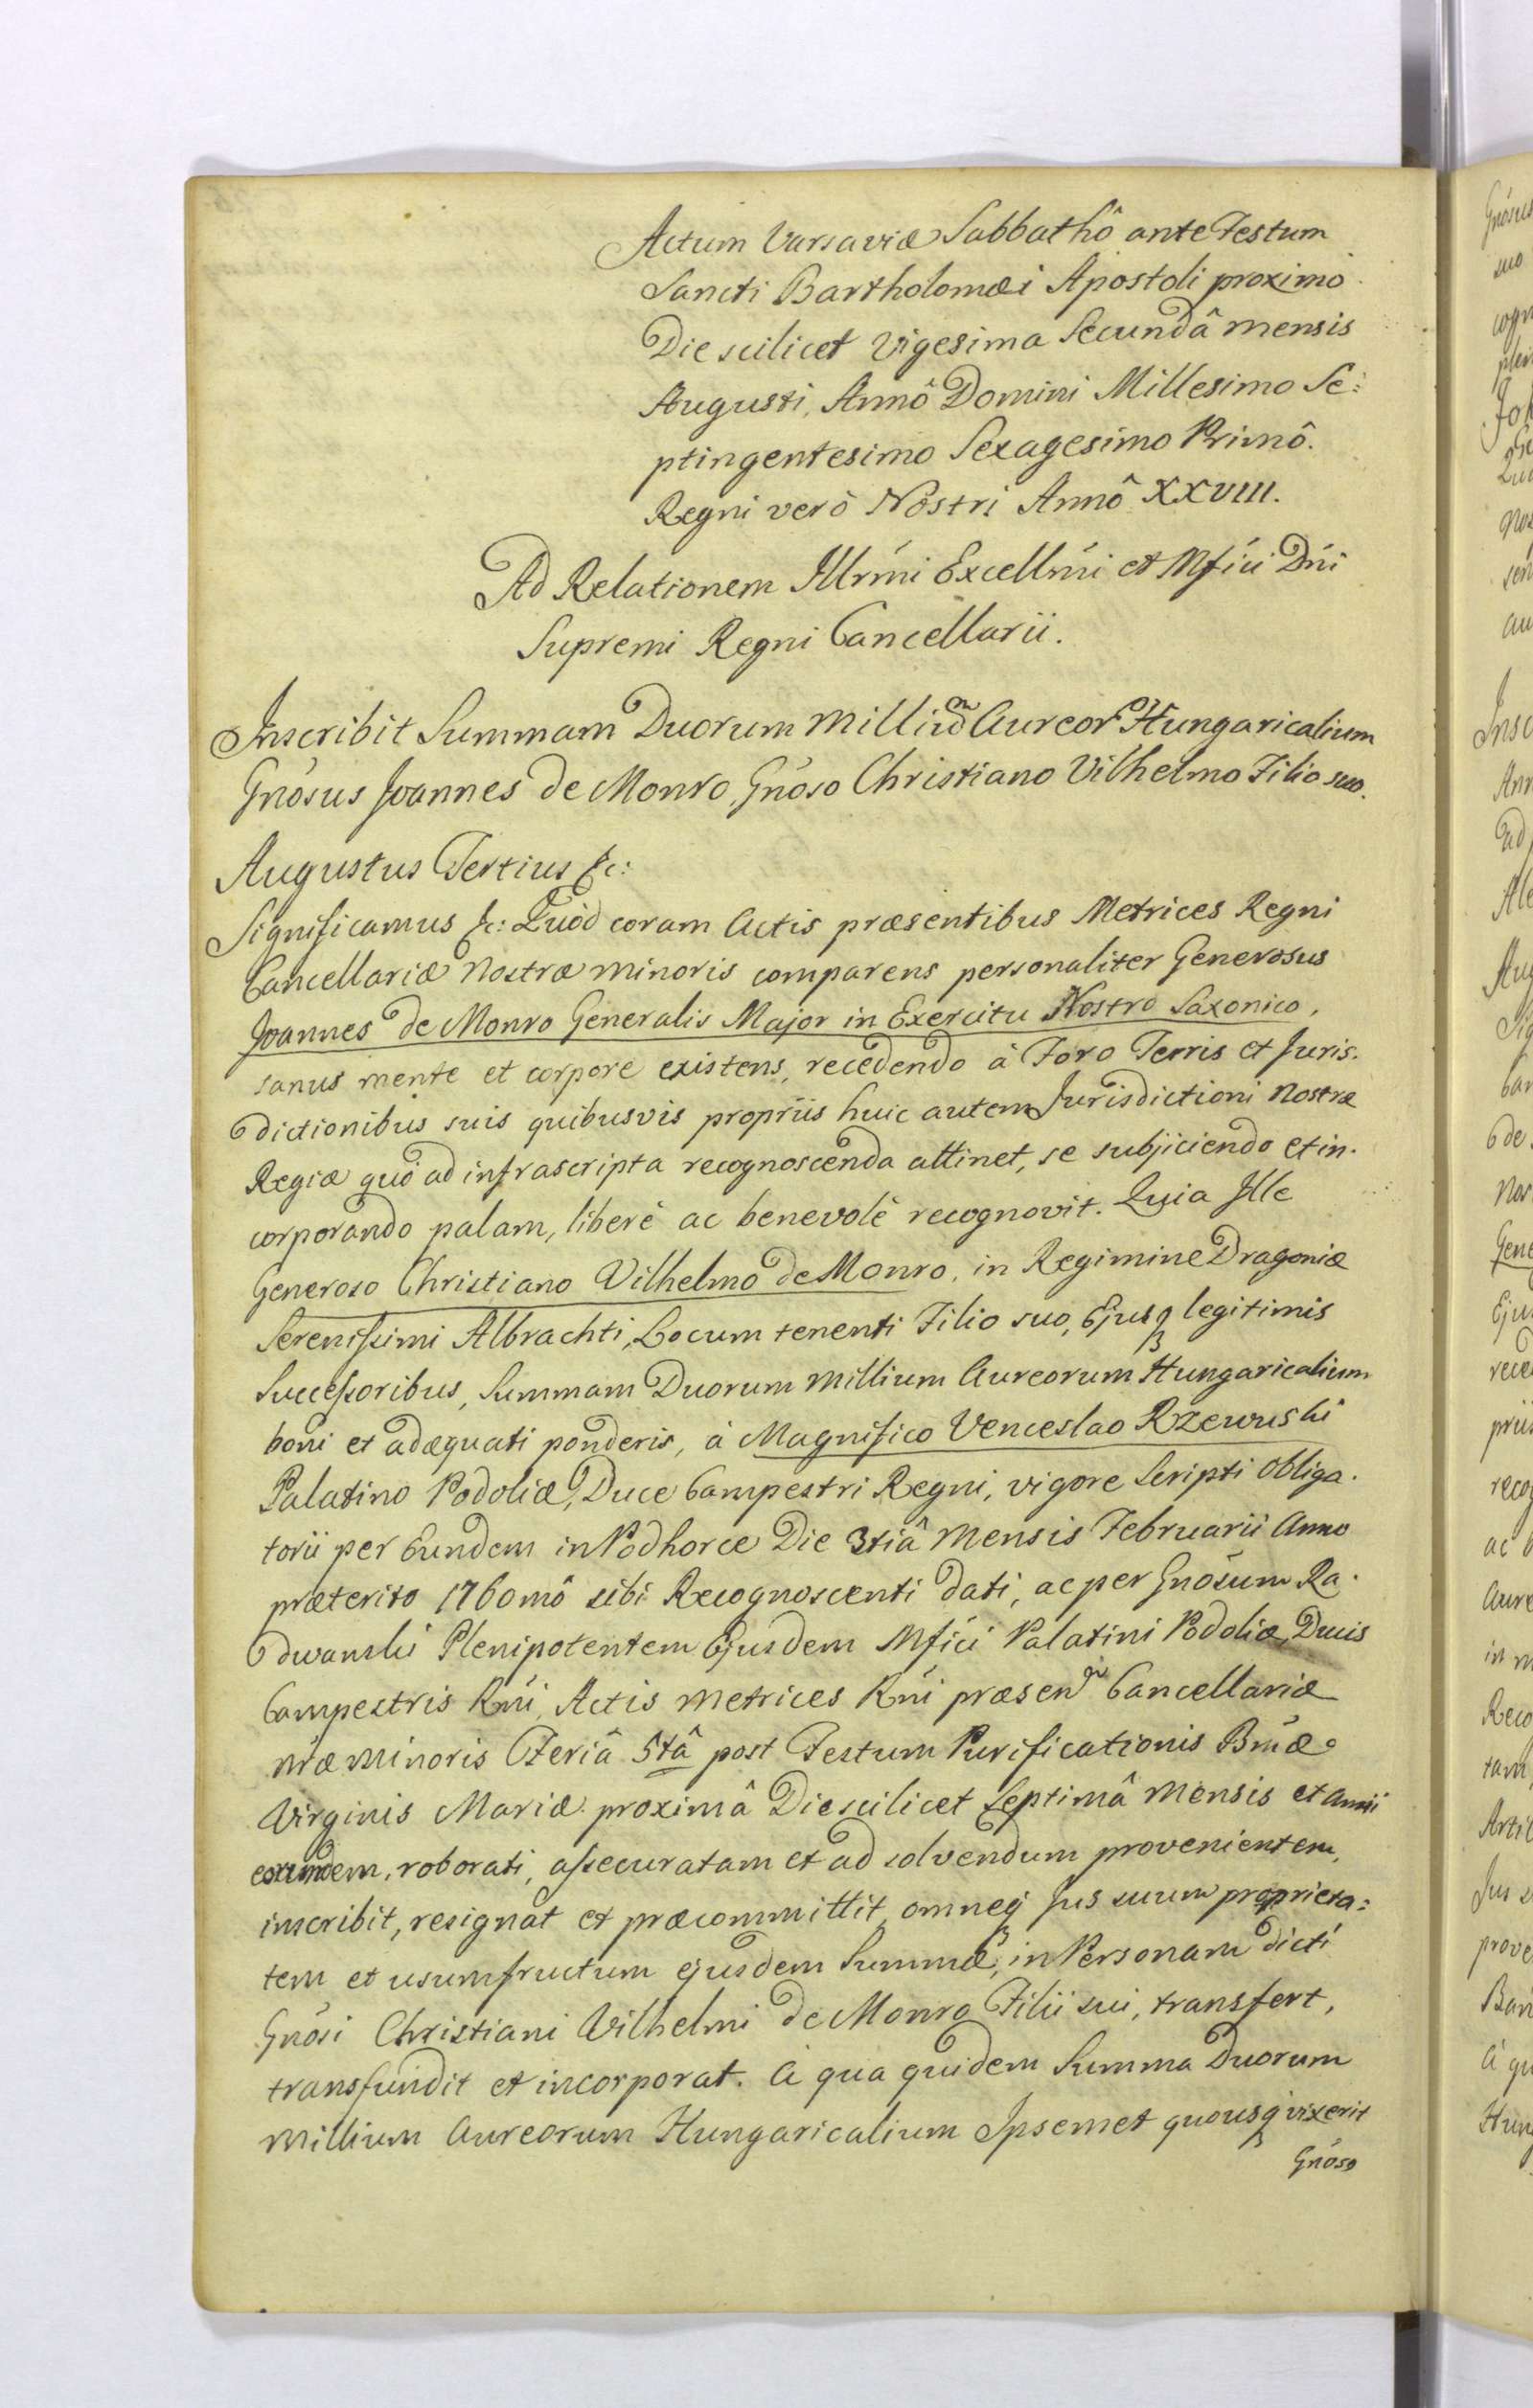 Actum Varsaviæ Sabbathô ante Festum
Sancti Bartholomæi Apostoli proximo
Die scilicet Vigesima Secundâ mensis
Augusti, Annô Domini Millesimo Se:
ptingentesimo Sexagesimo Primô.
Regni verò Nostri Annô XXVIII.
Ad Relationem Illrmi Excellmi et Mfici Dni
Supremi Regni Cancellarii.
Inscribit Summam Duorum Millium Aureor Hungaricalium
Gnosus Joannes de Monro, Gnoso Christiano Vilhelmo Filio suo.
Augustus Tertius &c:
Significamus &c: Quòd coram Actis præsentibus Metrices Regni
Cancellariæ Nostræ minoris comparens personaliter Generosus
Joannes de Monro Generalis Major in Exercitu Nostro Saxonico,
sanus mente et corpore existens, recedendo à Foro Terris et Juris.
dictionibus suis quibusvis propriis huic autem Jurisdictioni Nostræ
Regiæ quò ad infrascripta recognoscenda attinet, se subjiciendo et in.
corporando palam, liberè ac benevolè recognovit. Quia Ille
Generoso Christiano Vilhelmo de Monro, in Regimine Dragoniæ
Serenissimi Albrachti, Locum tenenti Filio suo, Ejusq legitimis
Successoribus, Summam Duorum Millium Aureorum Hungaricalium
boni et adæquati ponderis, à Magnifico Venceslao Rzewuski
Palatino Podoliæ, Duce Campestri Regni, vigore Scripti obliga.
torii per Eundem in Podhorce Die 3tiâ Mensis Februarii Anno
præterito 1760mô sibi Recognoscenti dati, ac per Gnosum Ra.
dwanski Plenipotentem Ejusdem Mfici Palatini Podoliæ, Ducis
Campestris Rni, Actis Metrices Rni præsen Cancellariæ
nræ minoris Feriâ 5tâ post Festum Purificationis Bmæ
Virginis Mariæ proximâ Die scilicet Septimâ Mensis et Anni
eorundem, roborati, assecuratam et ad solvendum provenientem,
inscribit, resignat et præcommittit, omneq Jus suum proprieta:
tem et usumfructum ejusdem Summæ, in Personam dicti
Gnosi Christiani Vilhelmi de Monro Filii sui, transfert,
transfundit et incorporat. A qua quidem Summa Duorum
Millium Aureorum Hungaricalium Ipsemet quousq vixerit
Gnoso